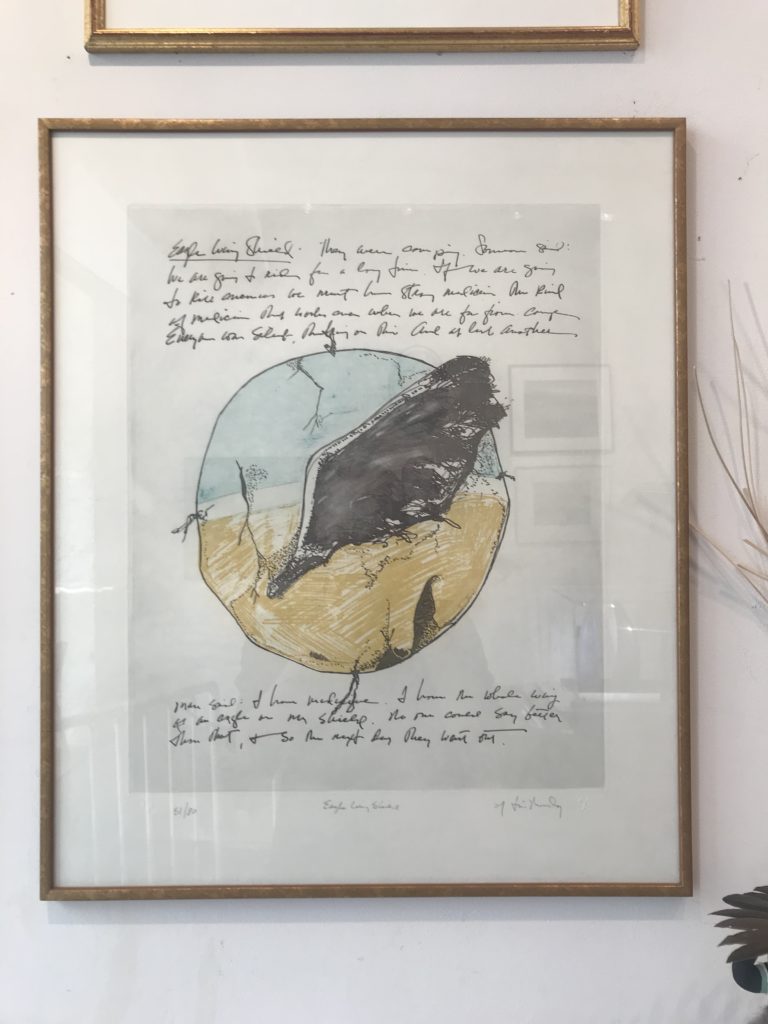 Eagle Wing Shield. They were camping. Someone said:
We are going to ride for a long time. If we are going
to kill enemies we must have strong medicine. The kind
of medicine that works even when we are far from camp.
Everyone was silent, thinking on this. And at last another
man said: I have medicine. I have the whole wing
of an eagle on my shield. No one could say better
than that, & so the next day they went out.
51/80 Eagle Wing Shield